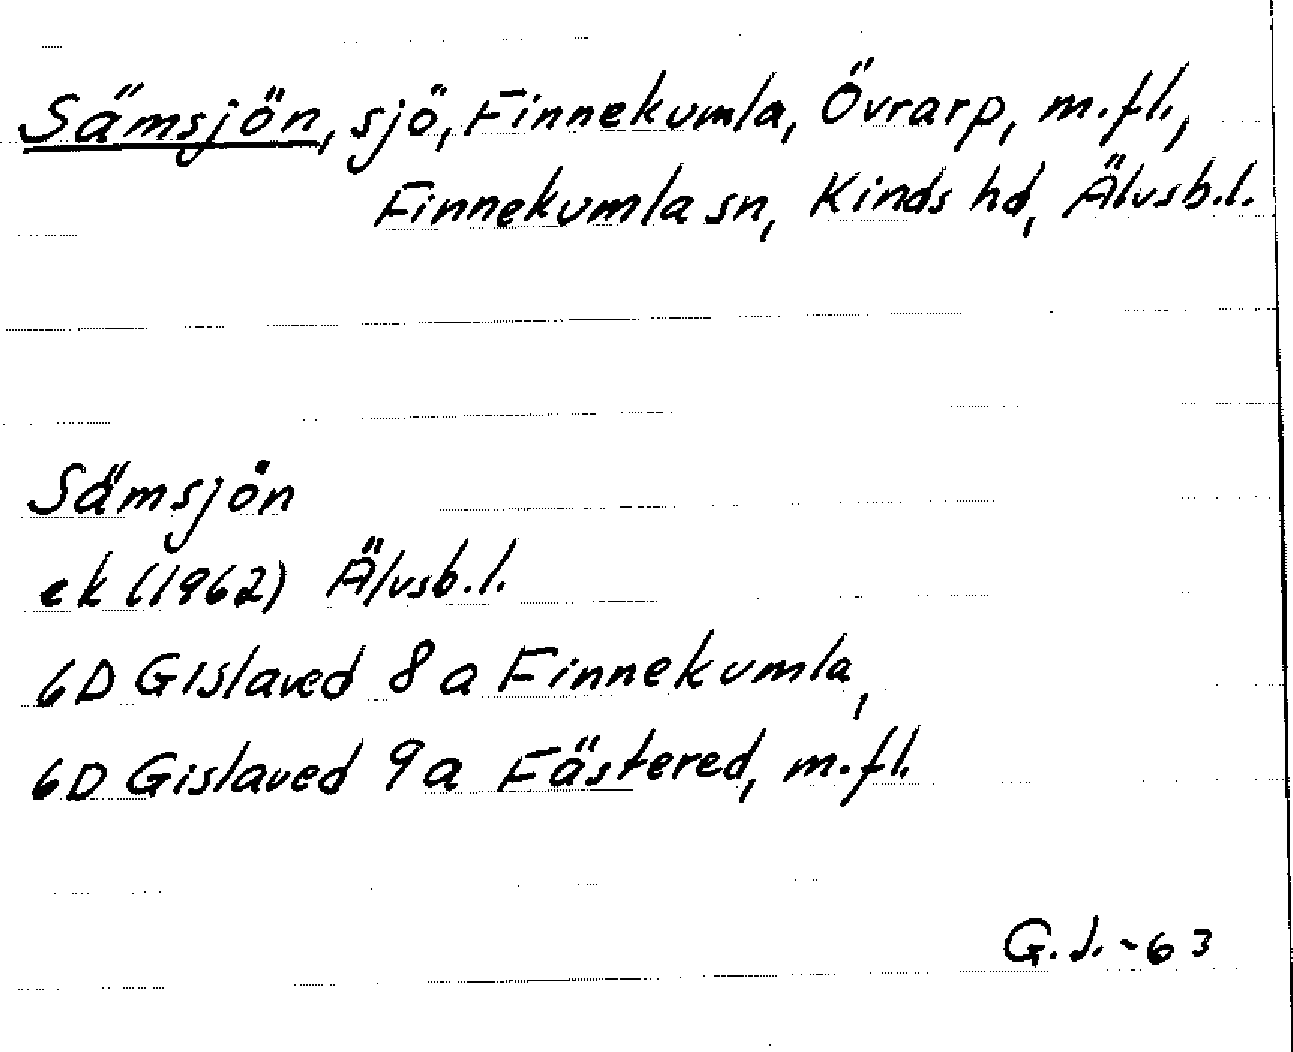 Sämsjön, sjö, Finnekumla, Övrarp, m.fl.,
Finnekumla sn, Kinds hd, Älvsb.l.
Sämsjön
ek (1962) Älvsb.l.
6D Gislaved 8a Finnekumla,
6D Gislaved 9a Fästered, m.fl.
G.J.-63